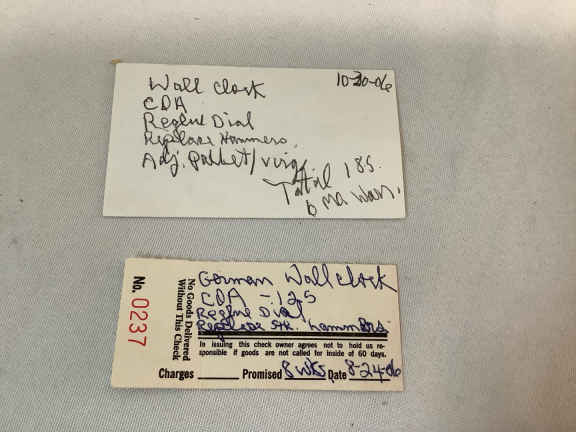 10-30-06
Wall Clock
COA
Reglue Dial
Replace Hammers.
Adj. Pallet/virg
Total 185.
6 mo. Warr.
No. 0237
No Goods Delivered
Without This Check
German Wall clock
COA - 125
Reglue Dial
Replace Stk. hammers
In issuing this check owner agrees not to hold us re-
sponsible if goods are not called for inside of 60 days.
Charges Promised 8 wks. Date 8-24-06